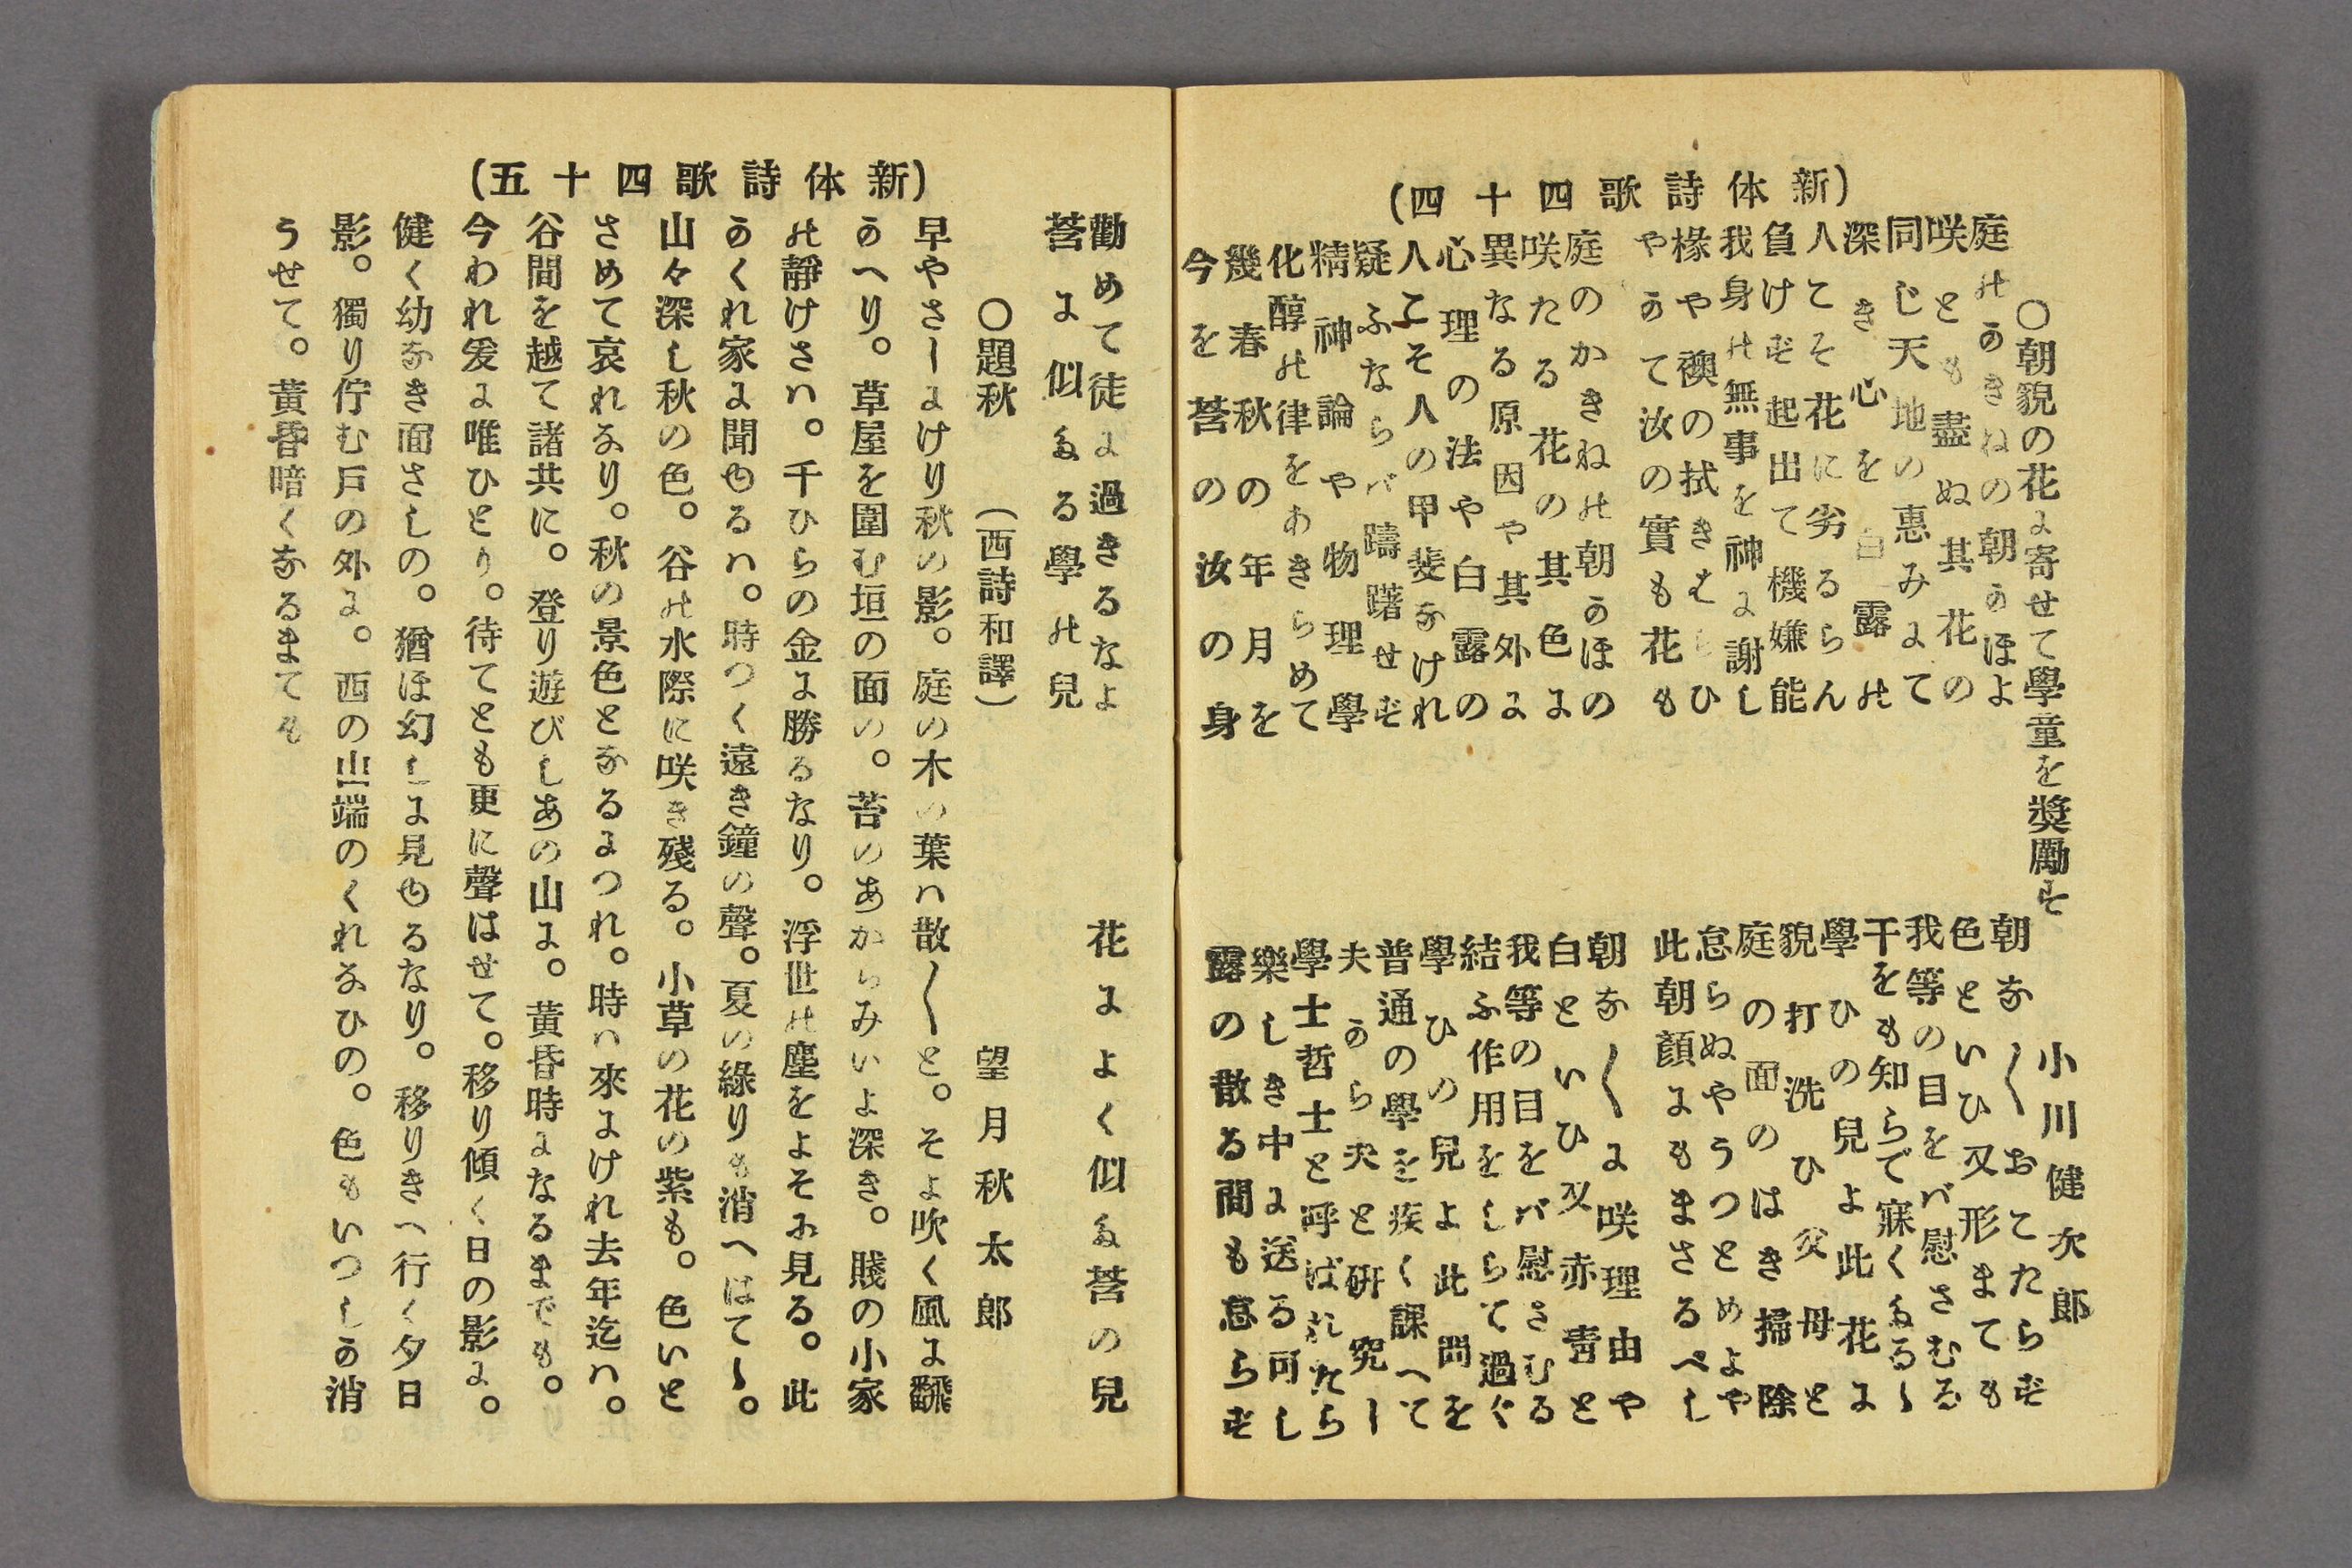 (新体詩歌四十四)
○朝貌の花に寄せて學童を奬勵す　小川健次郎
庭のかきねの朝かほよ　朝な〱おこたらず
咲とも盡ぬ其花の　色といひ又形まても
同じ天地の惠みにて　我等の目をバ慰さむる
深き心を白露の　干をも知らで寐くたるゝ
人こそ花に劣るらん　學ひの兒よ此花に
負けず起出て機嫌能　貌打洗ひ父母と
我身の無事を神に謝し　庭の面のはき掃除
椽や襖の拭き　怠らぬやうつとめよや
やかて汝の實も花も　此朝顔にもまさるべし
庭のかきねの朝かほの　朝な〱に咲理由や
咲たる花の其色に　白といひ又赤靑と
異なる原因や其外に　我等の目をバ慰さむる
心理の法や白露の　結ふ作用をしらて過ぐ
人こそ人の甲斐なけれ　學ひの兒よ此間を
疑ふならバ躊躇せず　普通の學を疾く課へて
精神論や物理學　夫から夫と研究し
化醇の律をあきらめて　學士哲士と呼ばれたら
幾春秋の年月を　樂しき中に送る可し
今を莟の汝の身　露の散る間も怠らず
(新体詩歌四十五)
勸めて徒に過きるなよ　花によく似た莟の兒
莟に似たる學の兒
○題秋　(西詩和譯)　望月秋太郎
早やさしにけり秋の影。庭の木の葉ハ散〱と。そよ吹く風に飜
かへり。草屋を圍む垣の面の。苔のあからみいよ深き。賤の小家
の靜けさハ。千ひらの金に勝るなり。浮世の塵をよそに見る。此
かくれ家に聞ゆるハ。時つく遠き鐘の聲。夏の綠りも消へはてゝ。
山々深し秋の色。谷の水際に咲き殘る。小草の花の紫も。色いと
さめて哀れなり。秋の景色となるにつれ。時ハ來にけれ去年迄ハ。
谷間を越て諸共に。登り遊びしあの山に。黄昏時になるまでも。
今われ爰に唯ひとり。待てとも更に聲はせて。移り傾く日の影に。
健く幼なき面さしの。猶ほ幻しに見ゆるなり。移りきへ行く夕日
影。獨り佇む戸の外に。西の山端のくれなひの。色もいつしか消
うせて。黄昏暗くなるまても